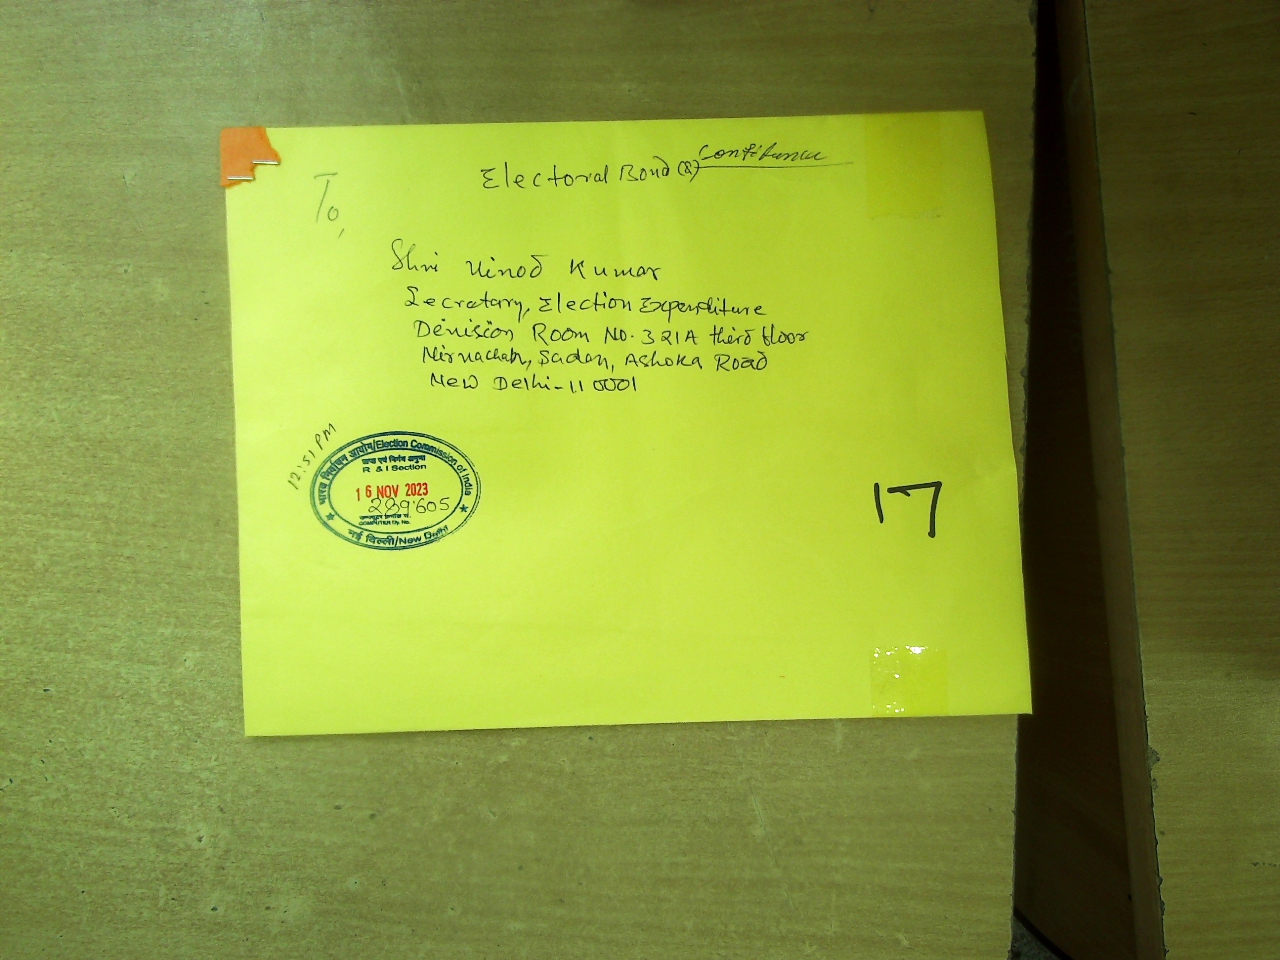 Electoral Bond (s) Confidence
To,
Shri Vinod Kumar
Secretary, Election Expenditure
Division Room No. 321A third floor
Nirvachan, Sadan, Ashoka Road
New Delhi-110001
12:51 PM
भारत निर्वाचन आयोग/Election Commission of India
प्राप्त एवं निर्गम अनुभाग
R & I Section
16 NOV 2023
289605
COMPUTER Dy. No.
नई दिल्ली/New Delhi
17